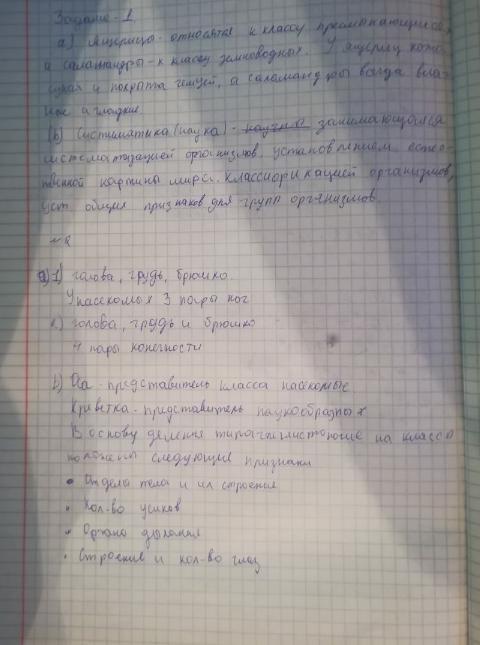 Задание - 1
а) Ящерицы - относятся к классу пресмыкающихся,
а саламандры - к классу земноводных. У ящериц кожа
сухая и покрыта чешуёй, а саламандры всегда влаж-
ные и гладкие.
(b) Систиматика (наука) - наука занимающаяся
систематизацией организмов, установлением естес-
твенной картины мира. классификацией организмов,
уст. общих признаков для групп организмов.
№ 2
а) 1) голова, грудь, брюшко.
У насекомых 3 пары ног
2.) голова, грудь и брюшко
4 пары конечности
b) Оса - представитель класса насекомые
Криветка - представитель паукообразных
В основу деления типа членистоногие на классы
положены следующие признаки
• Отдела тела и их строение
• Кол-во усиков
• Органо дыхания
• Строение и кол-во глаз